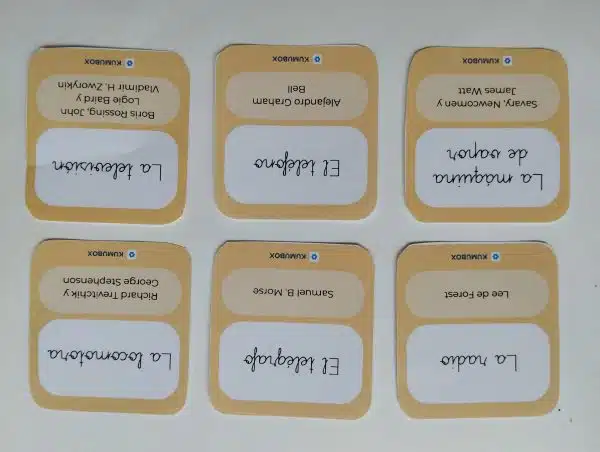 La radio
Lee de Forest
KUMUBOX
El telégrafo
Samuel B. Morse
KUMUBOX
La locomotora
Richard Trevitchik y
George Stephenson
KUMUBOX
La máquina
de vapor
Savary, Newcomen y
James Watt
KUMUBOX
El teléfono
Alejandro Graham
Bell
KUMUBOX
La televisión
Boris Rossing, John
Logie Baird y
Vladimir H. Zworykin
KUMUBOX